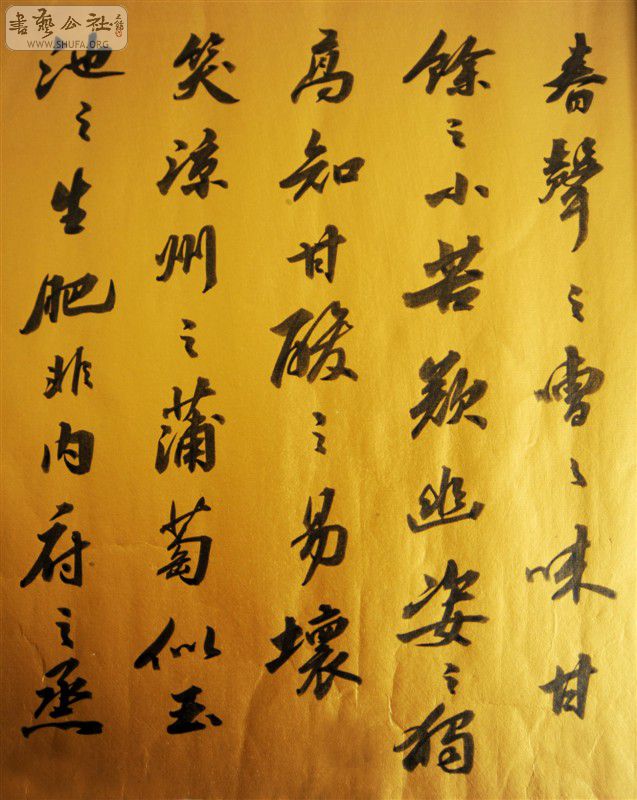 舂聲之嘈々味甘
餘之小苦歎幽姿之獨
高知甘酸之易壞
笑涼州之蒲萄似玉
池之生肥非內府之烝
書藝公社
WWW.SHUFA.ORG